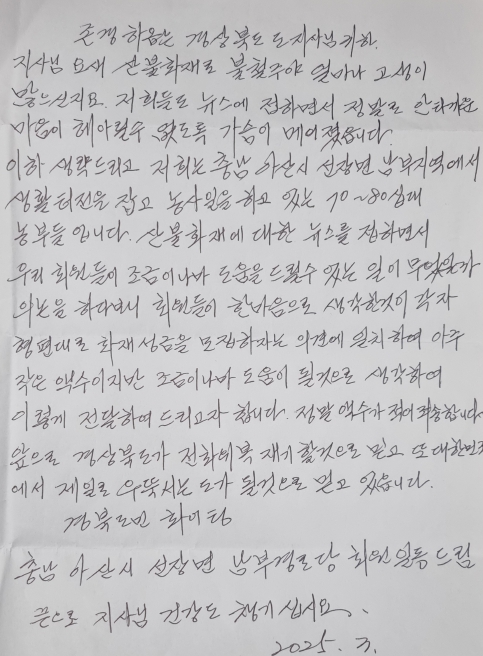 존경 하옵는 경상북도 도지사님 귀하.
지사님 요새 산불화재로 불철주야 얼마나 고생이
많으신지요. 저희들도 뉴스에 접하면서 정말로 안타까운
마음이 헤아릴수 없도록 가슴이 메어졌습니다.
이하 생략드리고 저희는 충남 아산시 선장면 남부지역에서
생활터전을 잡고 농사일을 하고 있는 70~80십대
농부들 입니다. 산불화재에 대한 뉴스를 접하면서
우리 회원들이 조금이나마 도움을 드릴수 있는 일이 무엇일까
의논을 하다보니 회원들이 한마음으로 생각한것이 각자
형편대로 화재성금을 모집하자는 의견에 일치하여 아주
작은 액수이지만 조금이나마 도움이 될것으로 생각하여
이렇게 전달하여 드리고자 합니다. 정말 액수가 적어 죄송합니다.
앞으로 경상북도가 전화위복 재기할것으로 믿고 또 대한민국
에서 제일로 우뚝서는 도가 될것으로 믿고 있습니다.
경북도민 화이팅
충남 아산시 선장면 남부경로당 회원일동 드림
끝으로 지사님 건강도 챙기십시요.
2025. 3.